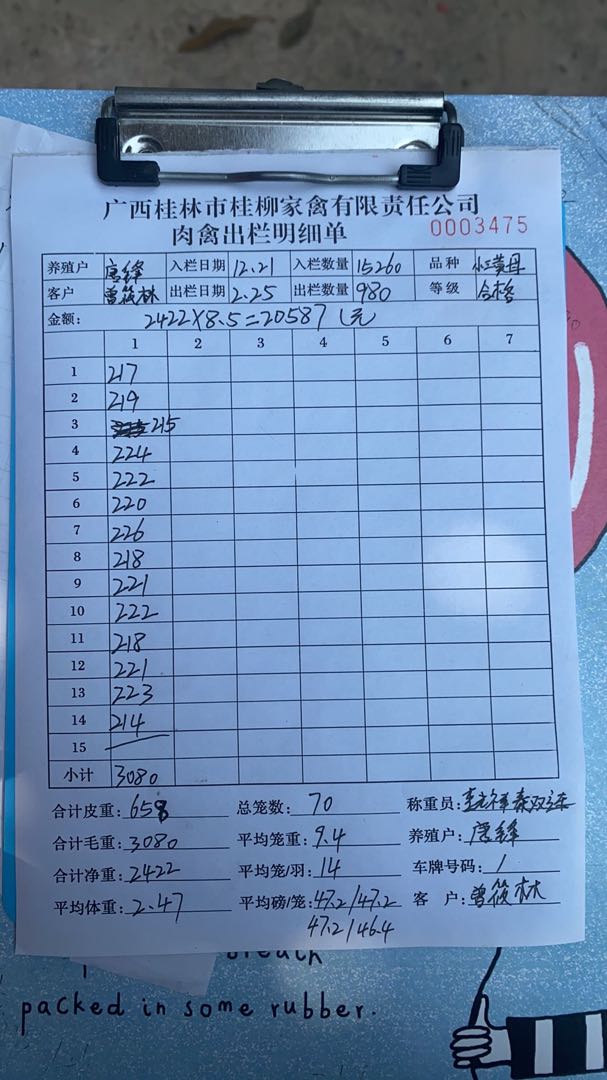 广西桂林市桂柳家禽有限责任公司
肉禽出栏明细单 0003475
养殖户 唐锋 入栏日期 12.21 入栏数量 15260 品种
客户 曾筱林 出栏日期 2.25 出栏数量 980 等级 合格
金额: 2422×8.5=20587元
1 2 3 4 5 6 7
1 217
2 219
3 215
4 224
5 222
6 220
7 226
8 218
9 221
10 222
11 218
12 221
13 223
14 214
15
小计 3080
合计皮重: 658 总笼数: 70 称重员:
合计毛重: 3080 平均笼重: 9.4 养殖户: 唐锋
合计净重: 2422 平均笼/羽: 14 车牌号码: /
平均体重: 2.47 平均磅/笼: 47.2/47.2 客 户: 曾筱林
47.2/46.4
packed in some rubber.